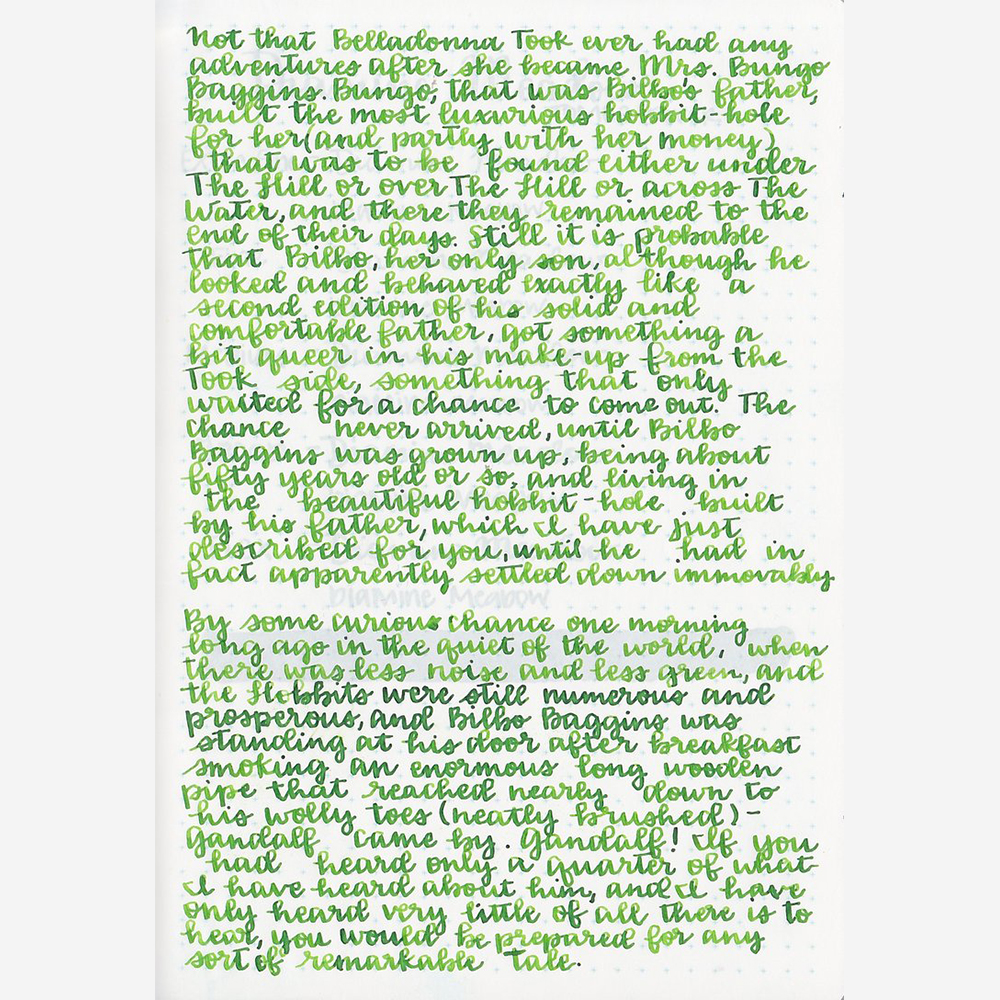 Not that Belladonna Took ever had any
adventures after she became Mrs. Bungo
Baggins. Bungo, that was Bilbos father,
built the most luxurious hobbit-hole
for her (and partly with her money)
that was to be found either under
The Hill or over The Hill or across The
Water, and there they remained to the
end of their days. Still it is probable
that Bilbo, her only son, although he
looked and behaved exactly like a
second edition of his solid and
comfortable father, got something a
bit queer in his make-up from the
Took side, something that only
waited for a chance to come out. The
chance never arrived, until Bilbo
Baggins was grown up, being about
fifty years old or so, and living in
the beautiful hobbit-hole built
by his father, which I have just
described for you, until he had in
fact apparently settled down immovably.
Diamine Meadow
By some curious chance one morning
long ago in the quiet of the world, when
there was less noise and less green, and
the Hobbits were still numerous and
prosperous, and Bilbo Baggins was
standing at his door after breakfast
smoking an enormous long wooden
pipe that reached nearly down to
his wolly toes (neatly brushed) -
Gandalf came by. Gandalf! If you
had heard only a quarter of what
I have heard about him, and I have
only heard very little of all there is to
hear, you would be prepared for any
sort of remarkable Tale.